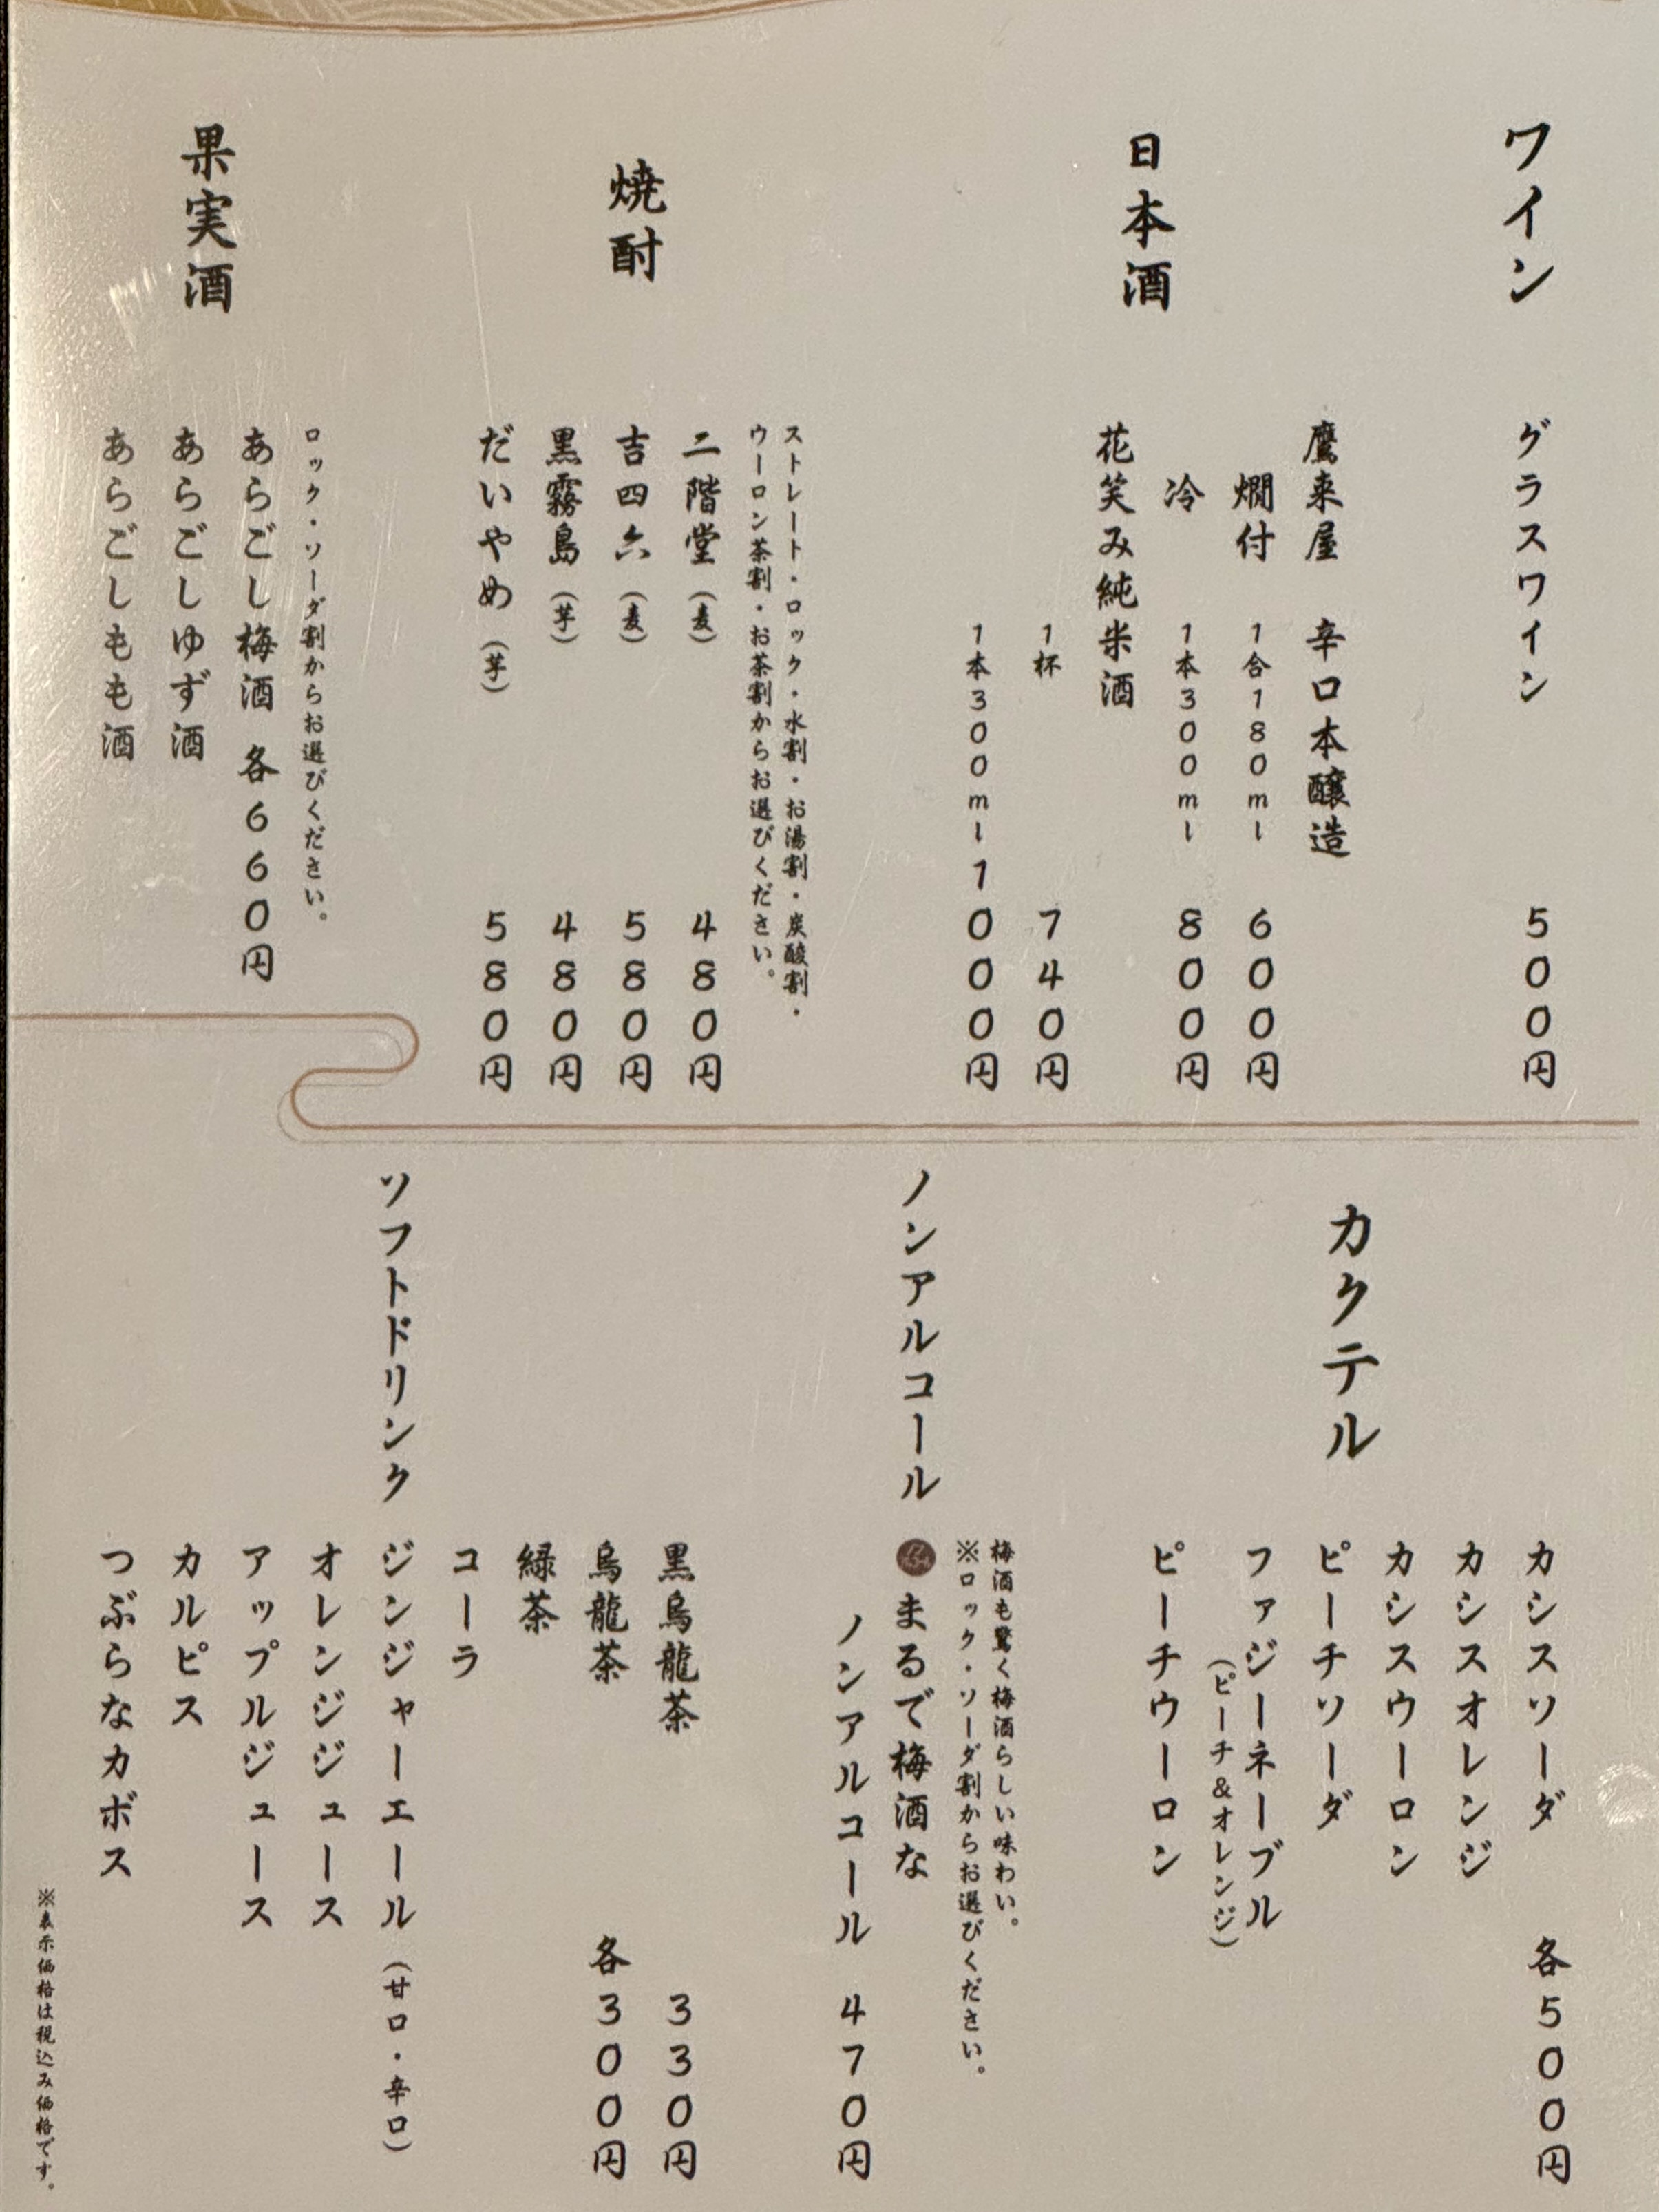 ワイン
グラスワイン 500円
日本酒
鷹来屋 辛口本醸造
燗付 1合180ml 600円
冷 1本300ml 800円
花笑み純米酒
1杯 740円
1本300ml 1000円
焼酎
ストレート・ロック・水割・お湯割・炭酸割・
ウーロン茶割・お茶割からお選びください。
二階堂(麦) 480円
吉四六(麦) 580円
黒霧島(芋) 480円
だいやめ(芋) 580円
果実酒
ロック・ソーダ割からお選びください。
あらごし梅酒 各660円
あらごしゆず酒
あらごしもも酒
カクテル
カシスソーダ 各500円
カシスオレンジ
カシスウーロン
ピーチソーダ
ファジーネーブル
(ピーチ&オレンジ)
ピーチウーロン
ノンアルコール
梅酒も驚く梅酒らしい味わい。
※ロック・ソーダ割からお選びください。
まるで梅酒な
ノンアルコール 470円
ソフトドリンク
黒烏龍茶 330円
烏龍茶 各300円
緑茶
コーラ
ジンジャーエール(甘口・辛口)
オレンジジュース
アップルジュース
カルピス
つぶらなカボス
※表示価格は税込み価格です。